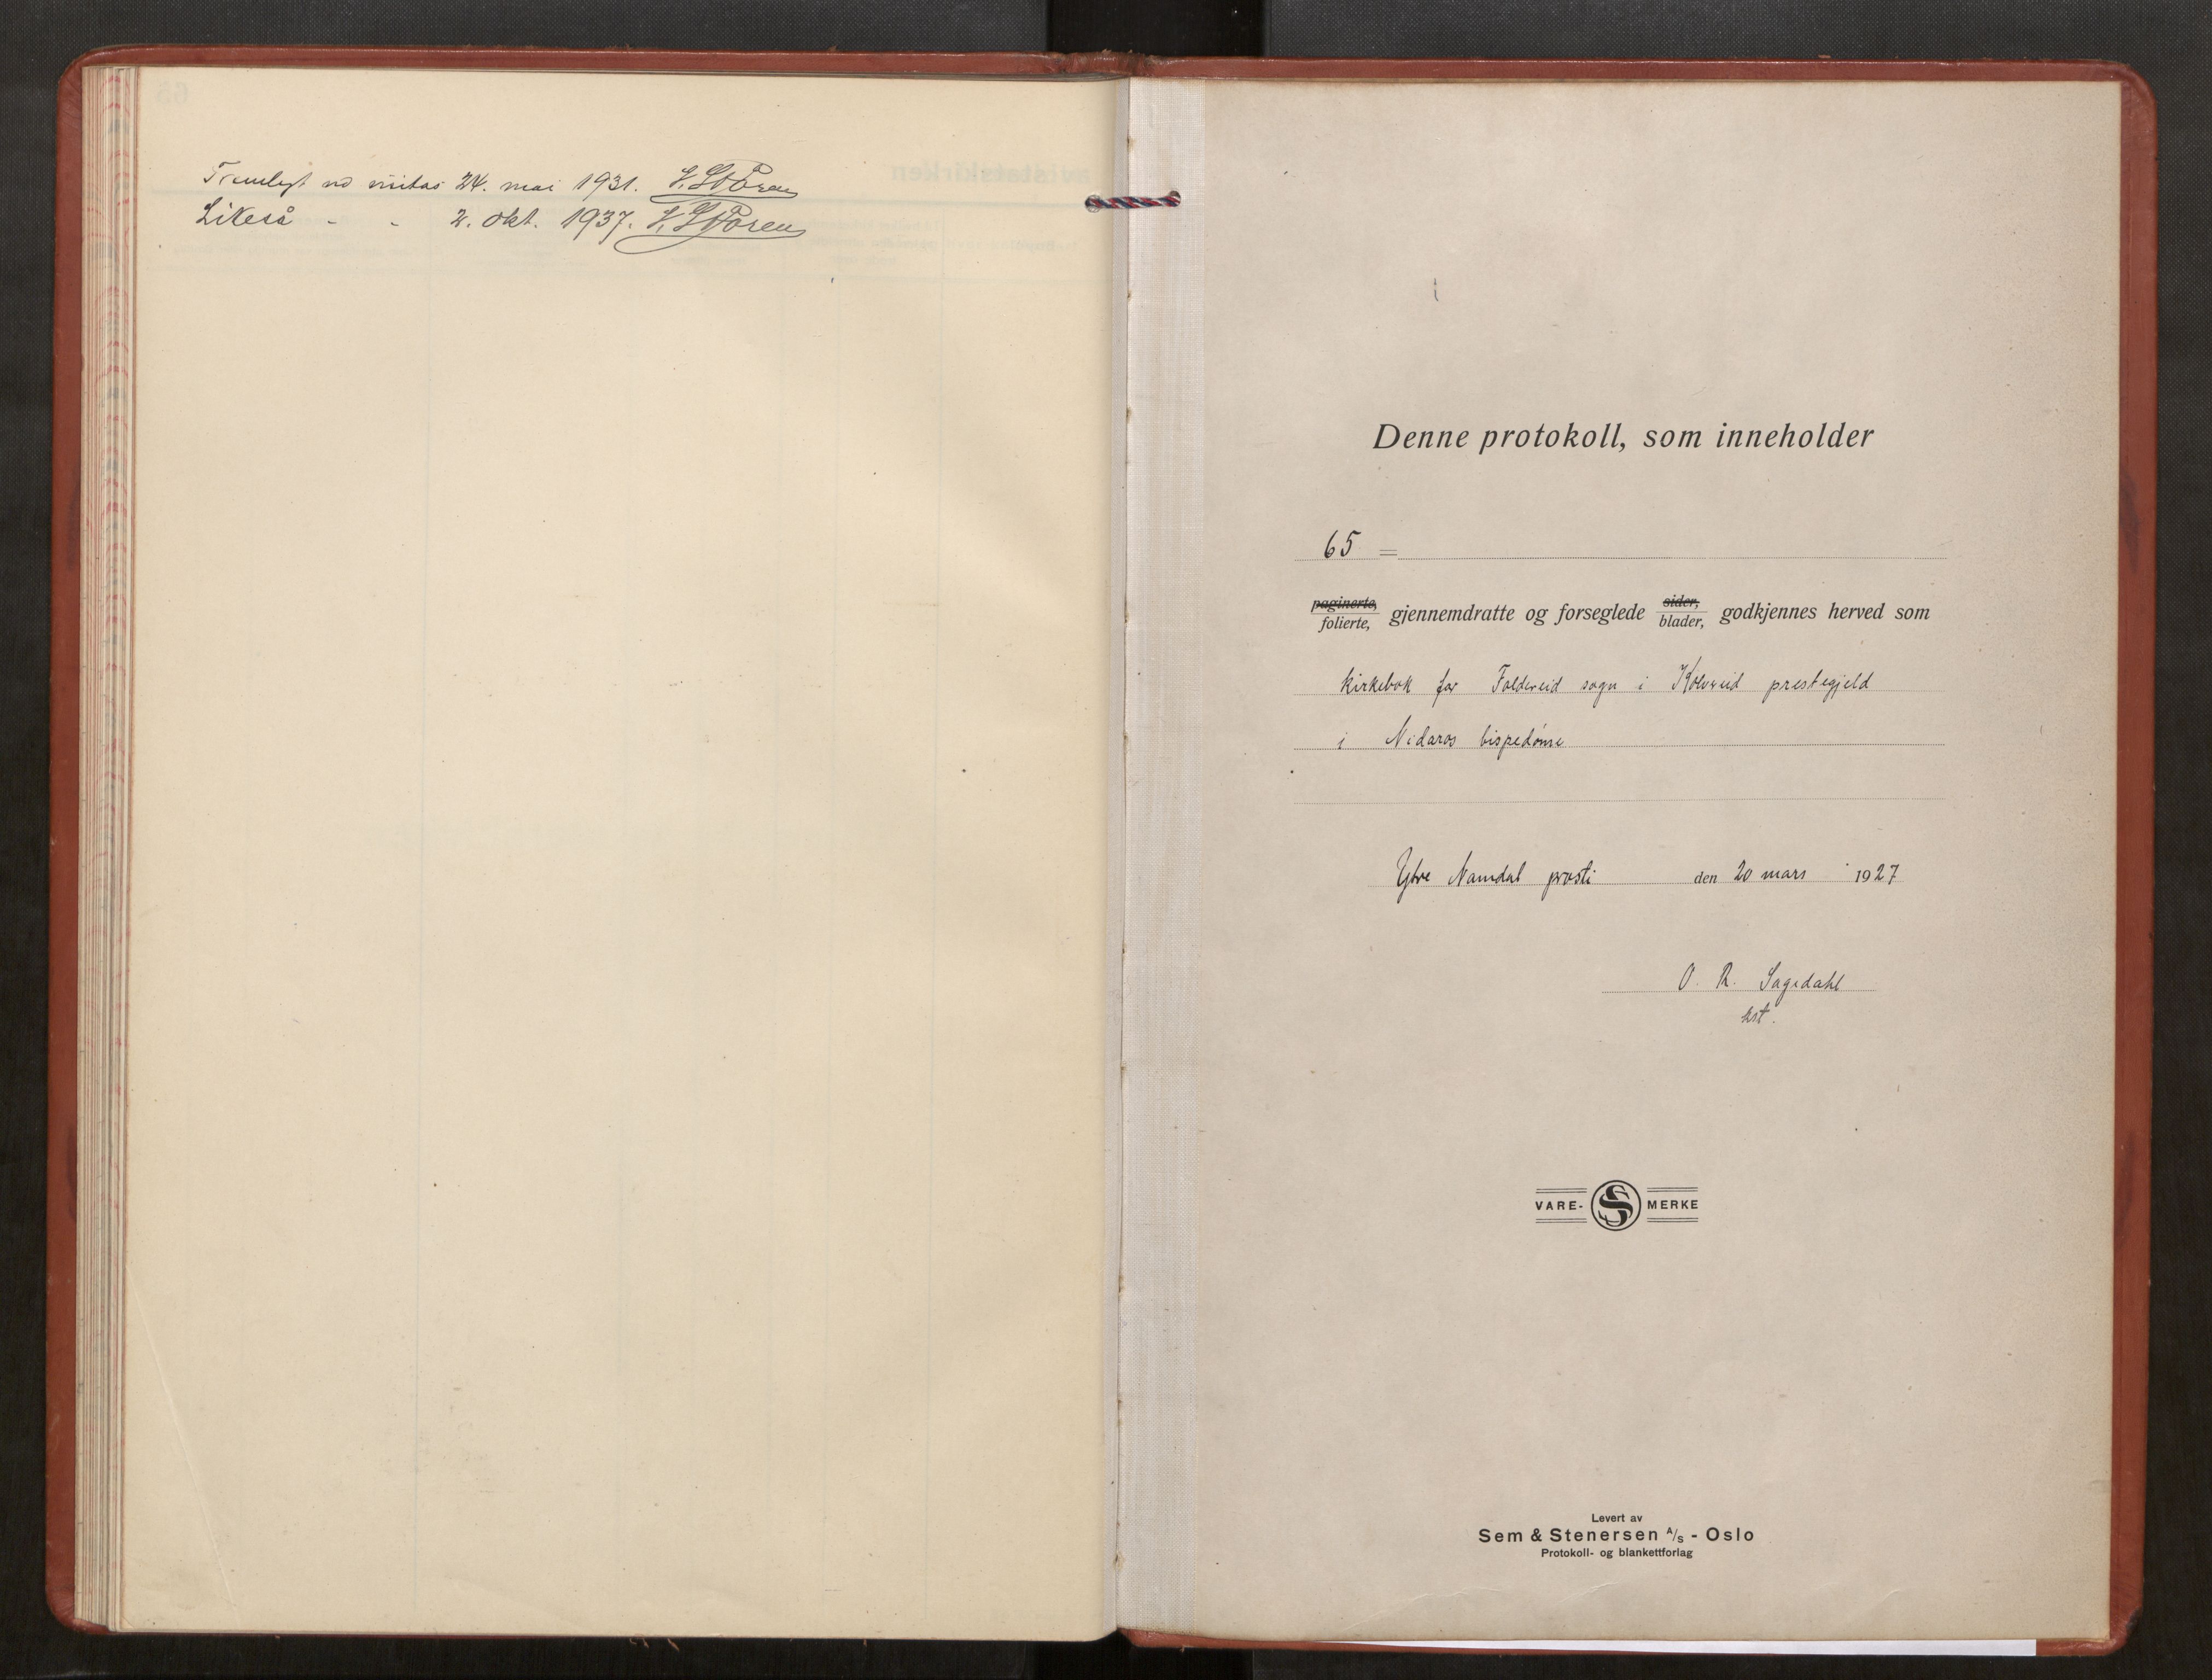 Fremlagt ved visitas 24. mai 1931. J. Støren
Likeså - - 2. okt. 1937. J. Støren
Denne protokoll, som inneholder
65 =
paginerte, folierte, gjennemdratte og forseglede sider, blader, godkjennes herved som
kirkebok for Foldereid sogn i Kolvereid prestegjeld
i Nidaros bispedømme
Ytre Namdal prosti den 20 mars 1927
O. R. Sagedahl
kst.
VARE- S MERKE
Levert av
Sem & Stenersen A/S - Oslo
Protokoll- og blankettforlag